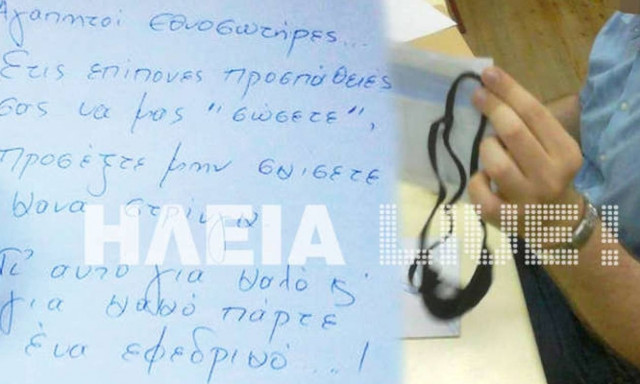 Αγαπητοί εθνοσωτήρες...
Στις επίπονες προσπάθειές
σας να μας "σώσετε",
προσέξτε μην σκισετε
κανα στρινγκ.
Γι' αυτό για καλό κ'
για κακό πάρτε
ένα εφεδρικό...!
ΗΛΕΙΑ LIVE!